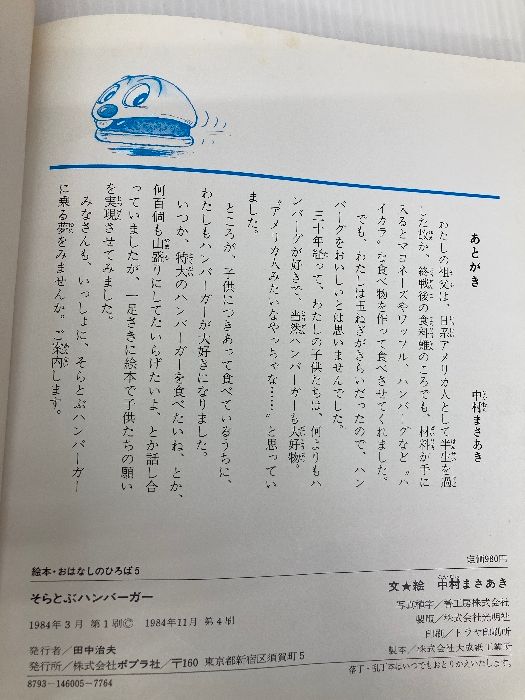 あとがき
中村まさあき
わたしの祖父は、日系アメリカ人として半生を過
した故か、終戦後の食料難のころでも、材料が手に
入るとマヨネーズやワッフル、ハンバーグなど〝ハ
イカラ〟な食べ物を作って食べさせてくれました。
でも、わたしは玉ねぎがきらいだったので、ハン
バーグをおいしいとは思いませんでした。
三十年経って、わたしの子供たちは、何よりもハ
ンバーグが好きで、当然ハンバーガーも大好物。
〝アメリカ人みたいなやっちゃな……〟と思ってい
ました。
ところが、子供につきあって食べているうちに、
わたしもハンバーガーが大好きになりました。
いつか、特大のハンバーガーを食べたいね、とか、
何百個も山盛りにしてたいらげたいよ、とか話し合
っていましたが、一足さきに絵本で子供たちの願い
を実現させてみました。
みなさんも、いっしょに、そらとぶハンバーガー
に乗る夢をみませんか。ご案内します。
定価980円
絵本・おはなしのひろば5
そらとぶハンバーガー
文★絵 中村まさあき
1984年3月 第1刷© 1984年11月 第4刷
発行者/田中治夫
発行所/株式会社ポプラ社/〒160 東京都新宿区須賀町5
8793-146005-7764
写真植字/
製版/株式会社光明社
印刷/トラヤ印刷所
製本/株式会社大成紙工製本
落丁・乱丁本はいつでもおとりかえいたします。